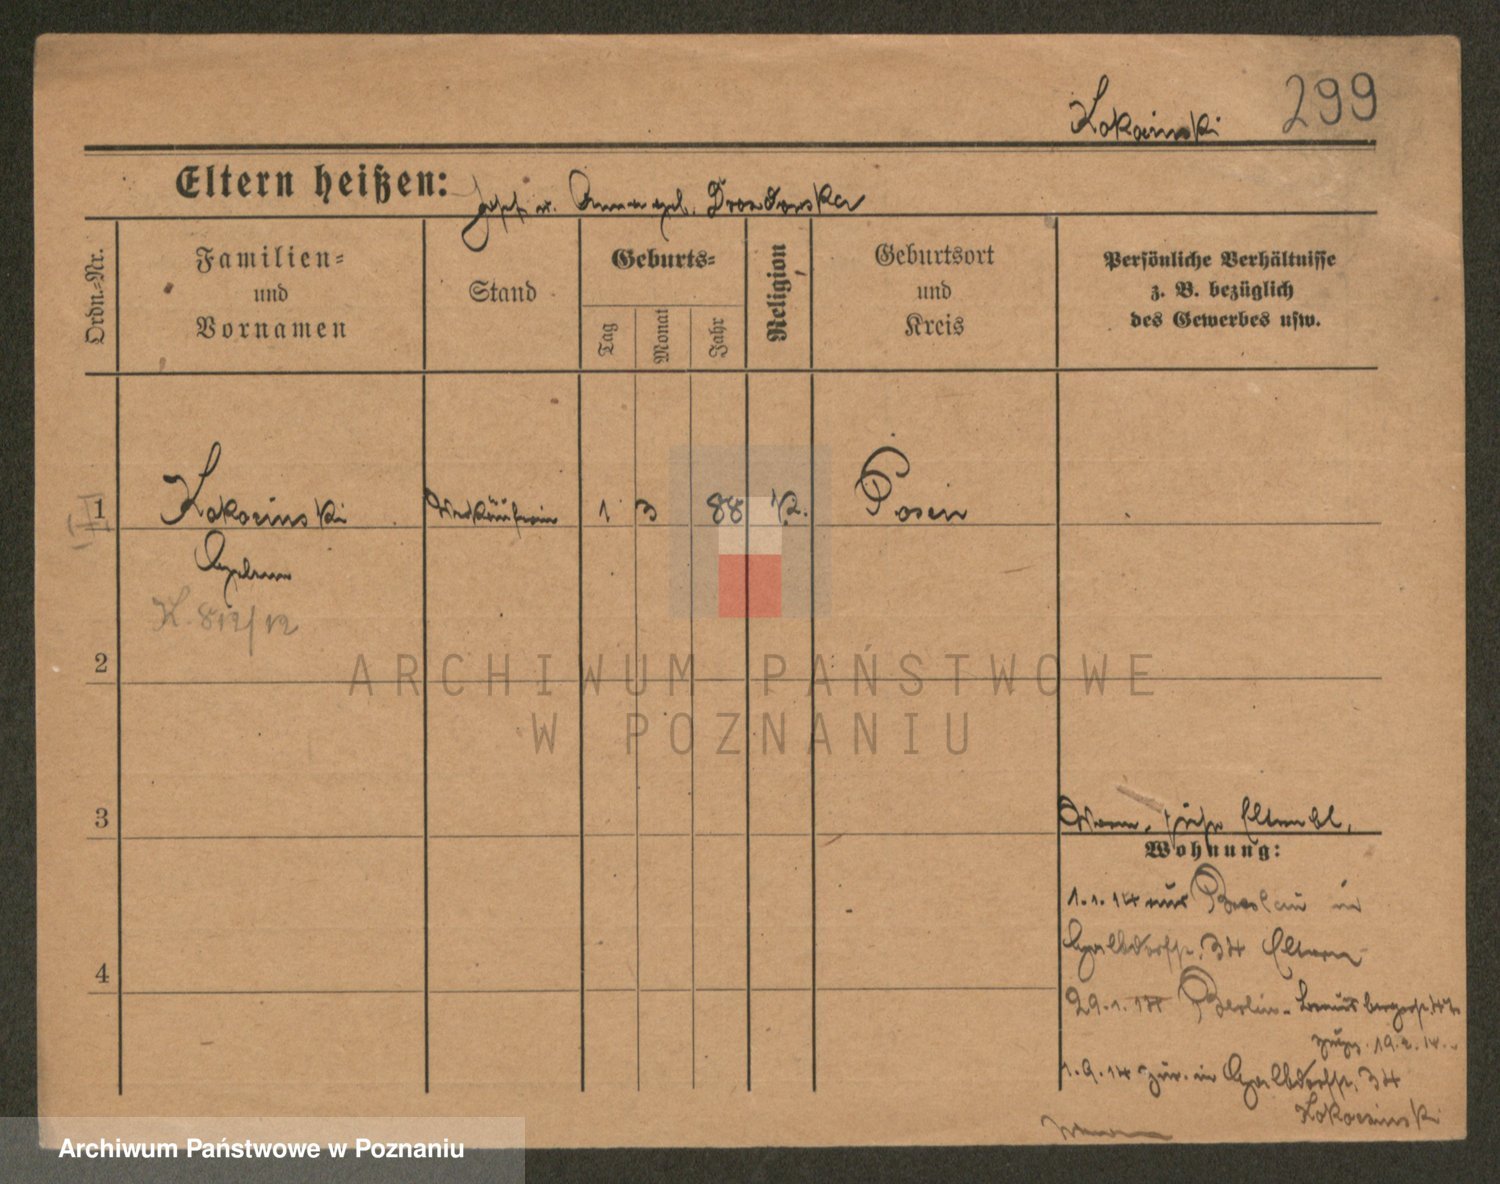 299
Kokocinski
Eltern heißen: Josef u. Anna geb. Drozdowska
Ordn.-Nr.
Familien-
und
Vornamen
Stand
Geburts-
Tag
Monat
Jahr
Religion
Geburtsort
und
Kreis
Persönliche Verhältnisse
z. B. bezüglich
des Gewerbes usw.
1 Kokocinski Verkäuferin 1 3 88 k. Posen
K. 812/12
2
3
4
siehe Elternbl.
Wohnung:
1.1.14 aus Breslau in
34 Eltern
29.1.14 Berlin
19.2.14.
1.9.14 zur. in 34
Kokocinski
ARCHIWUM PAŃSTWOWE
W POZNANIU
Archiwum Państwowe w Poznaniu